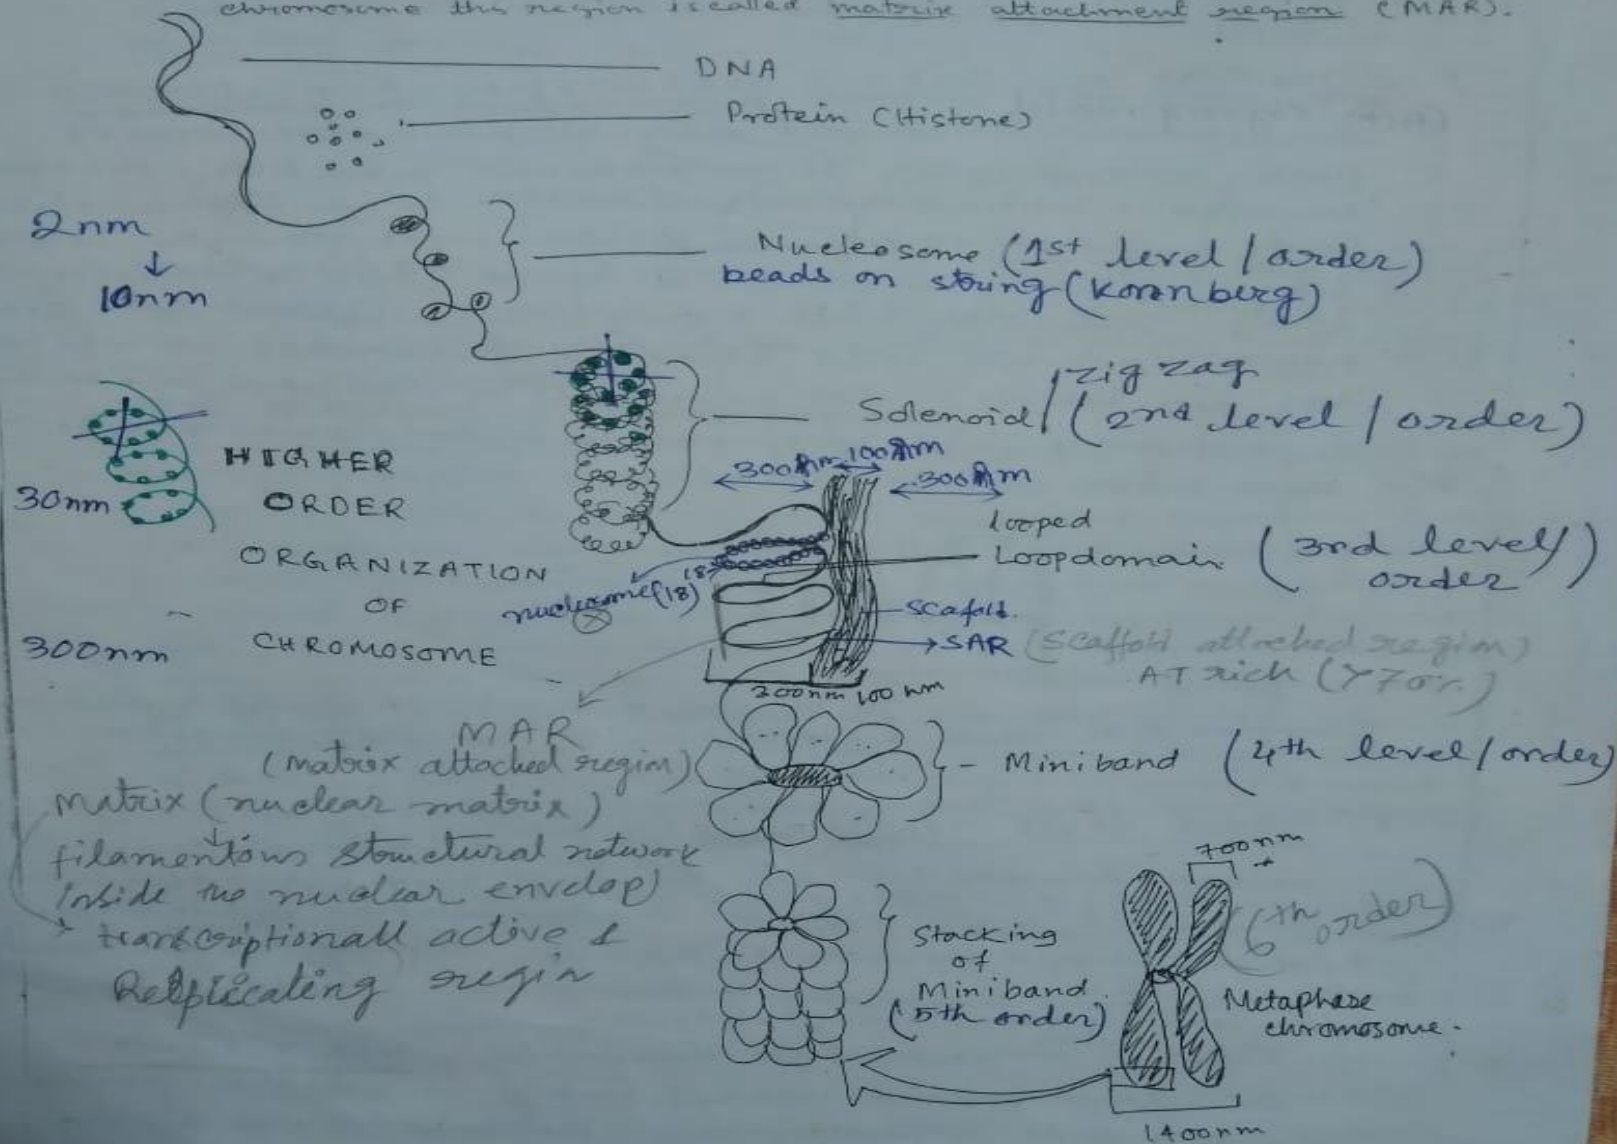 chromosome this region is called matrix attachment region (MAR).
DNA
Protein (Histone)
2nm
↓
10nm
Nucleosome (1st level / order)
beads on string (Kornberg)
zig zag
Solenoid / (2nd level / order)
HIGHER
ORDER
ORGANIZATION
OF
CHROMOSOME
30nm
300nm
300nm 100nm
300nm
looped
Loopdomain (3rd level/
order)
18
nucleosome (18)
Scafold.
→ SAR (Scaffold attached region)
AT rich (>70%)
300nm 100 nm
MAR
(matrix attached region)
Matrix (nuclear matrix)
↓
filamentous structural network
inside the nuclear envelop)
→ transcriptionall active &
Replicating regin
- Miniband (4th level/order)
Stacking
of
Miniband.
(5th order)
700nm
(6th order)
Metaphase
chromosome.
1400nm